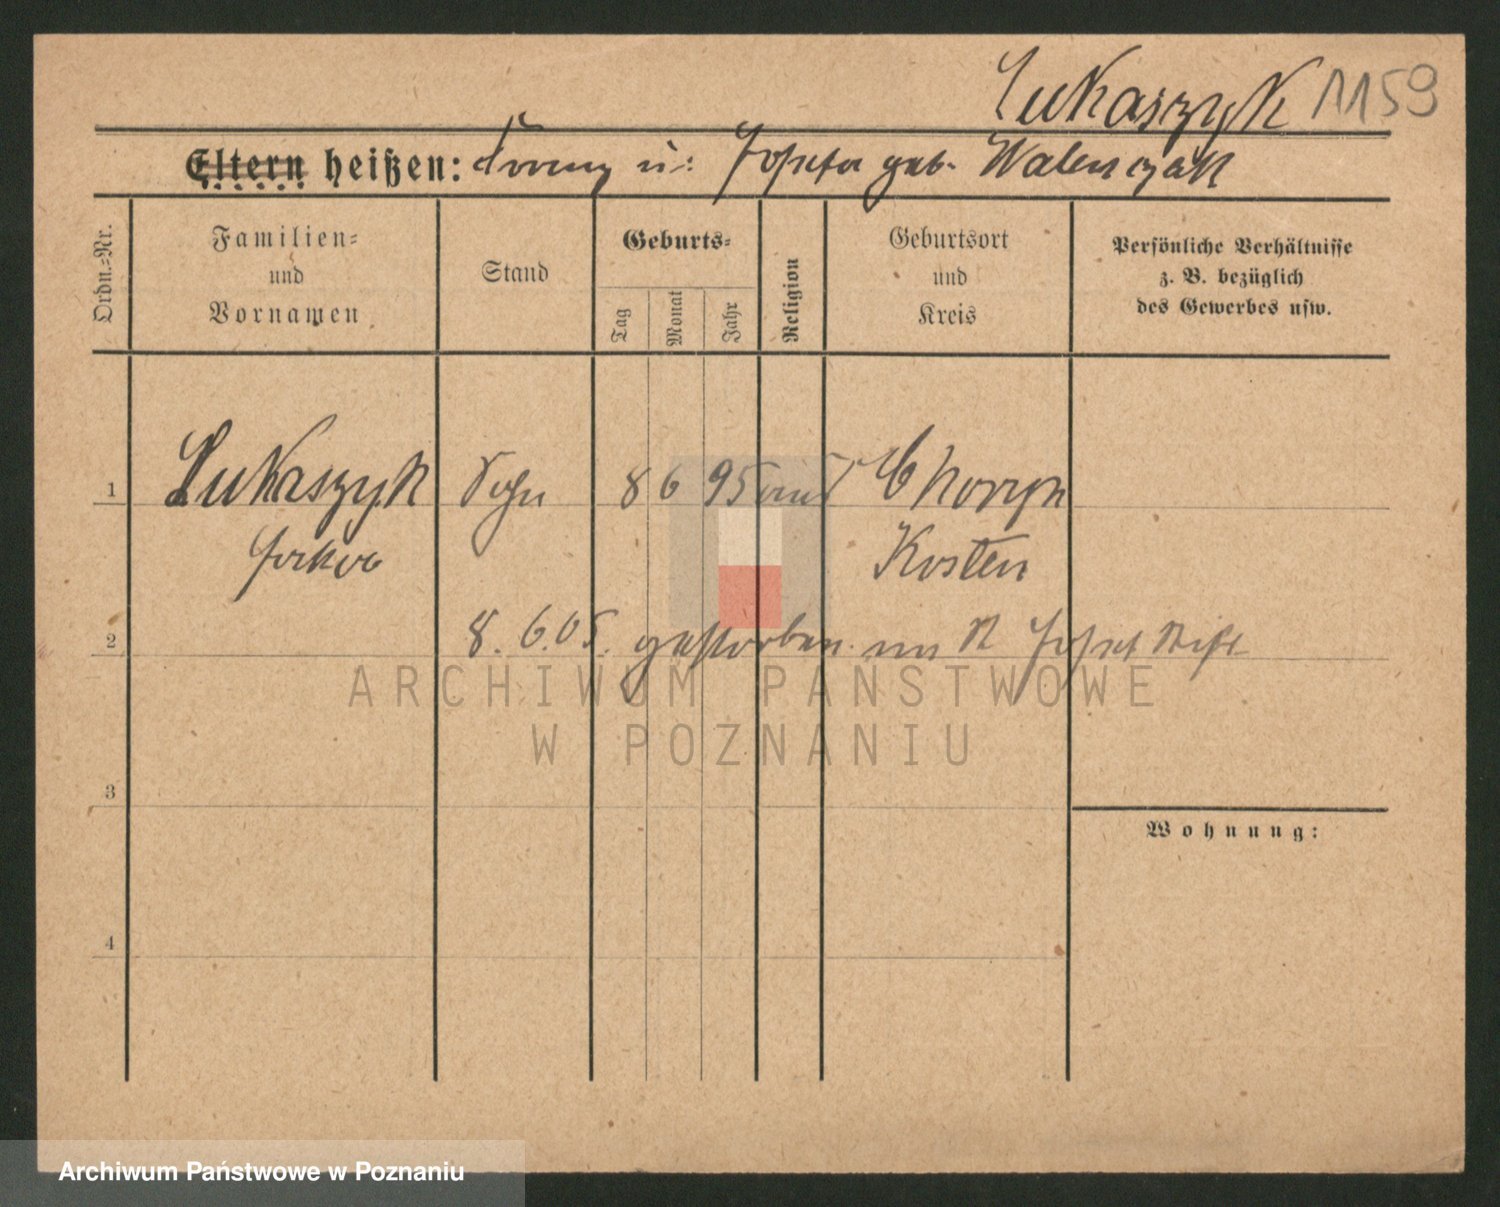 Lukaszyk 1159
Eltern heißen: Franz u: Josefa geb. Walenczak
Ordn.-Nr.
Familien-
und
Vornamen
Stand
Geburts-
Tag
Monat
Jahr
Religion
Geburtsort
und
Kreis
Persönliche Verhältnisse
z. B. bezüglich
des Gewerbes usw.
1 Lukaszyk Sohn 8 6 95 Choryn
Jakob Kosten
2 8. 6. 05. gestorben im St Josef Stift
ARCHIWUM PAŃSTWOWE
W POZNANIU
3
Wohnung:
4
Archiwum Państwowe w Poznaniu